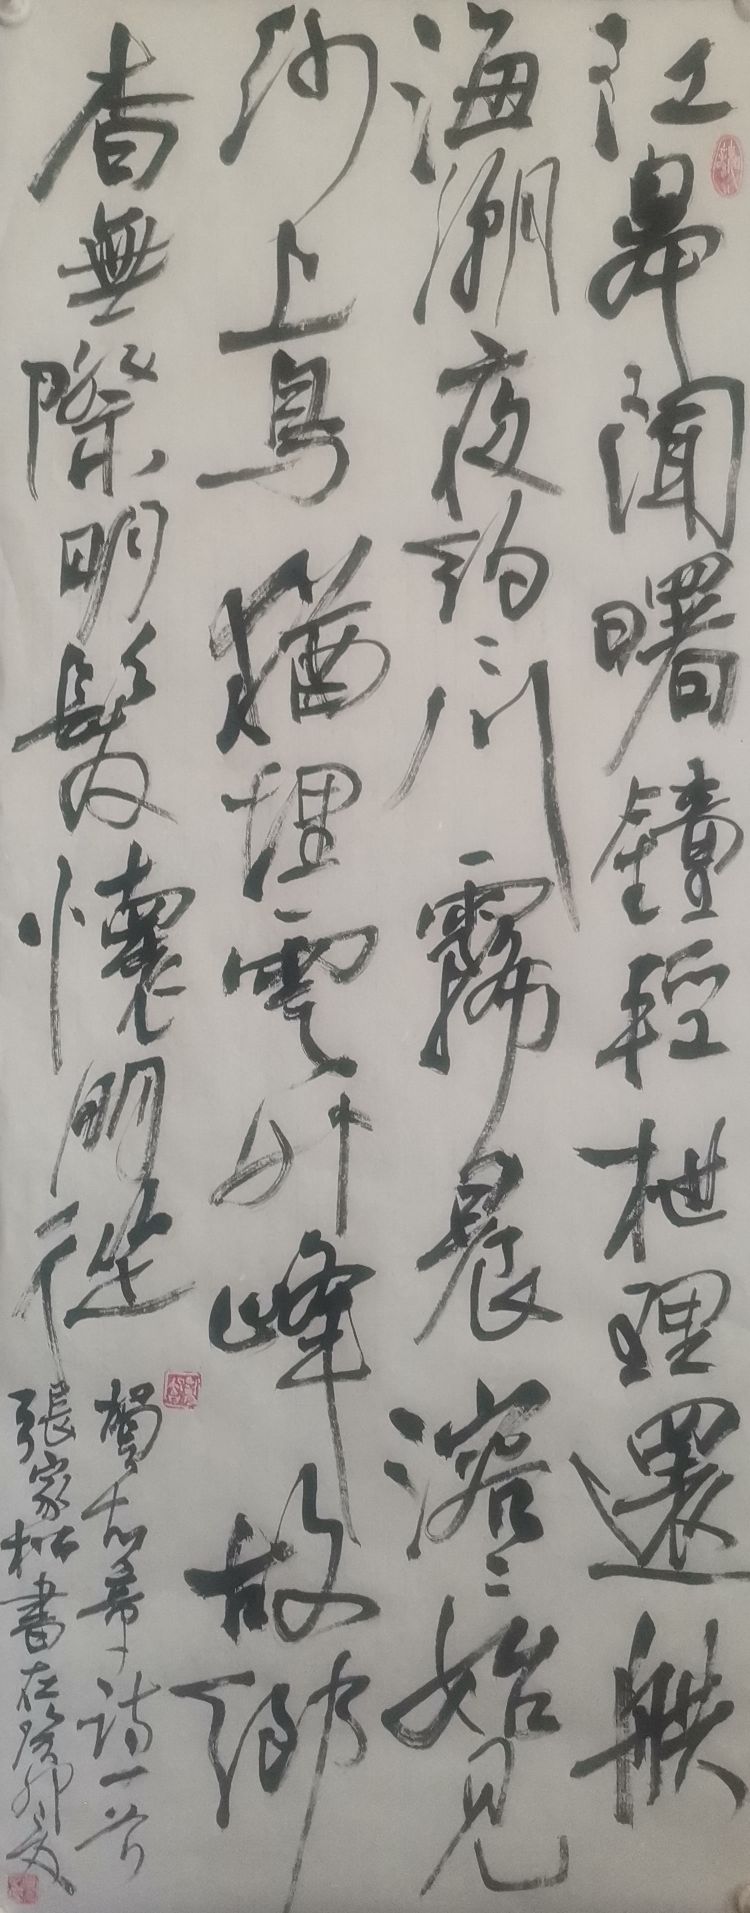 江皋聞曙鐘輕枻理還舼
海潮夜約〻川霧晨溶〻始見
沙上鳥猶埋雲外峰故鄉
杳無際明髮懷朋從
賀知章詩一首
張家松書在癸卯夏